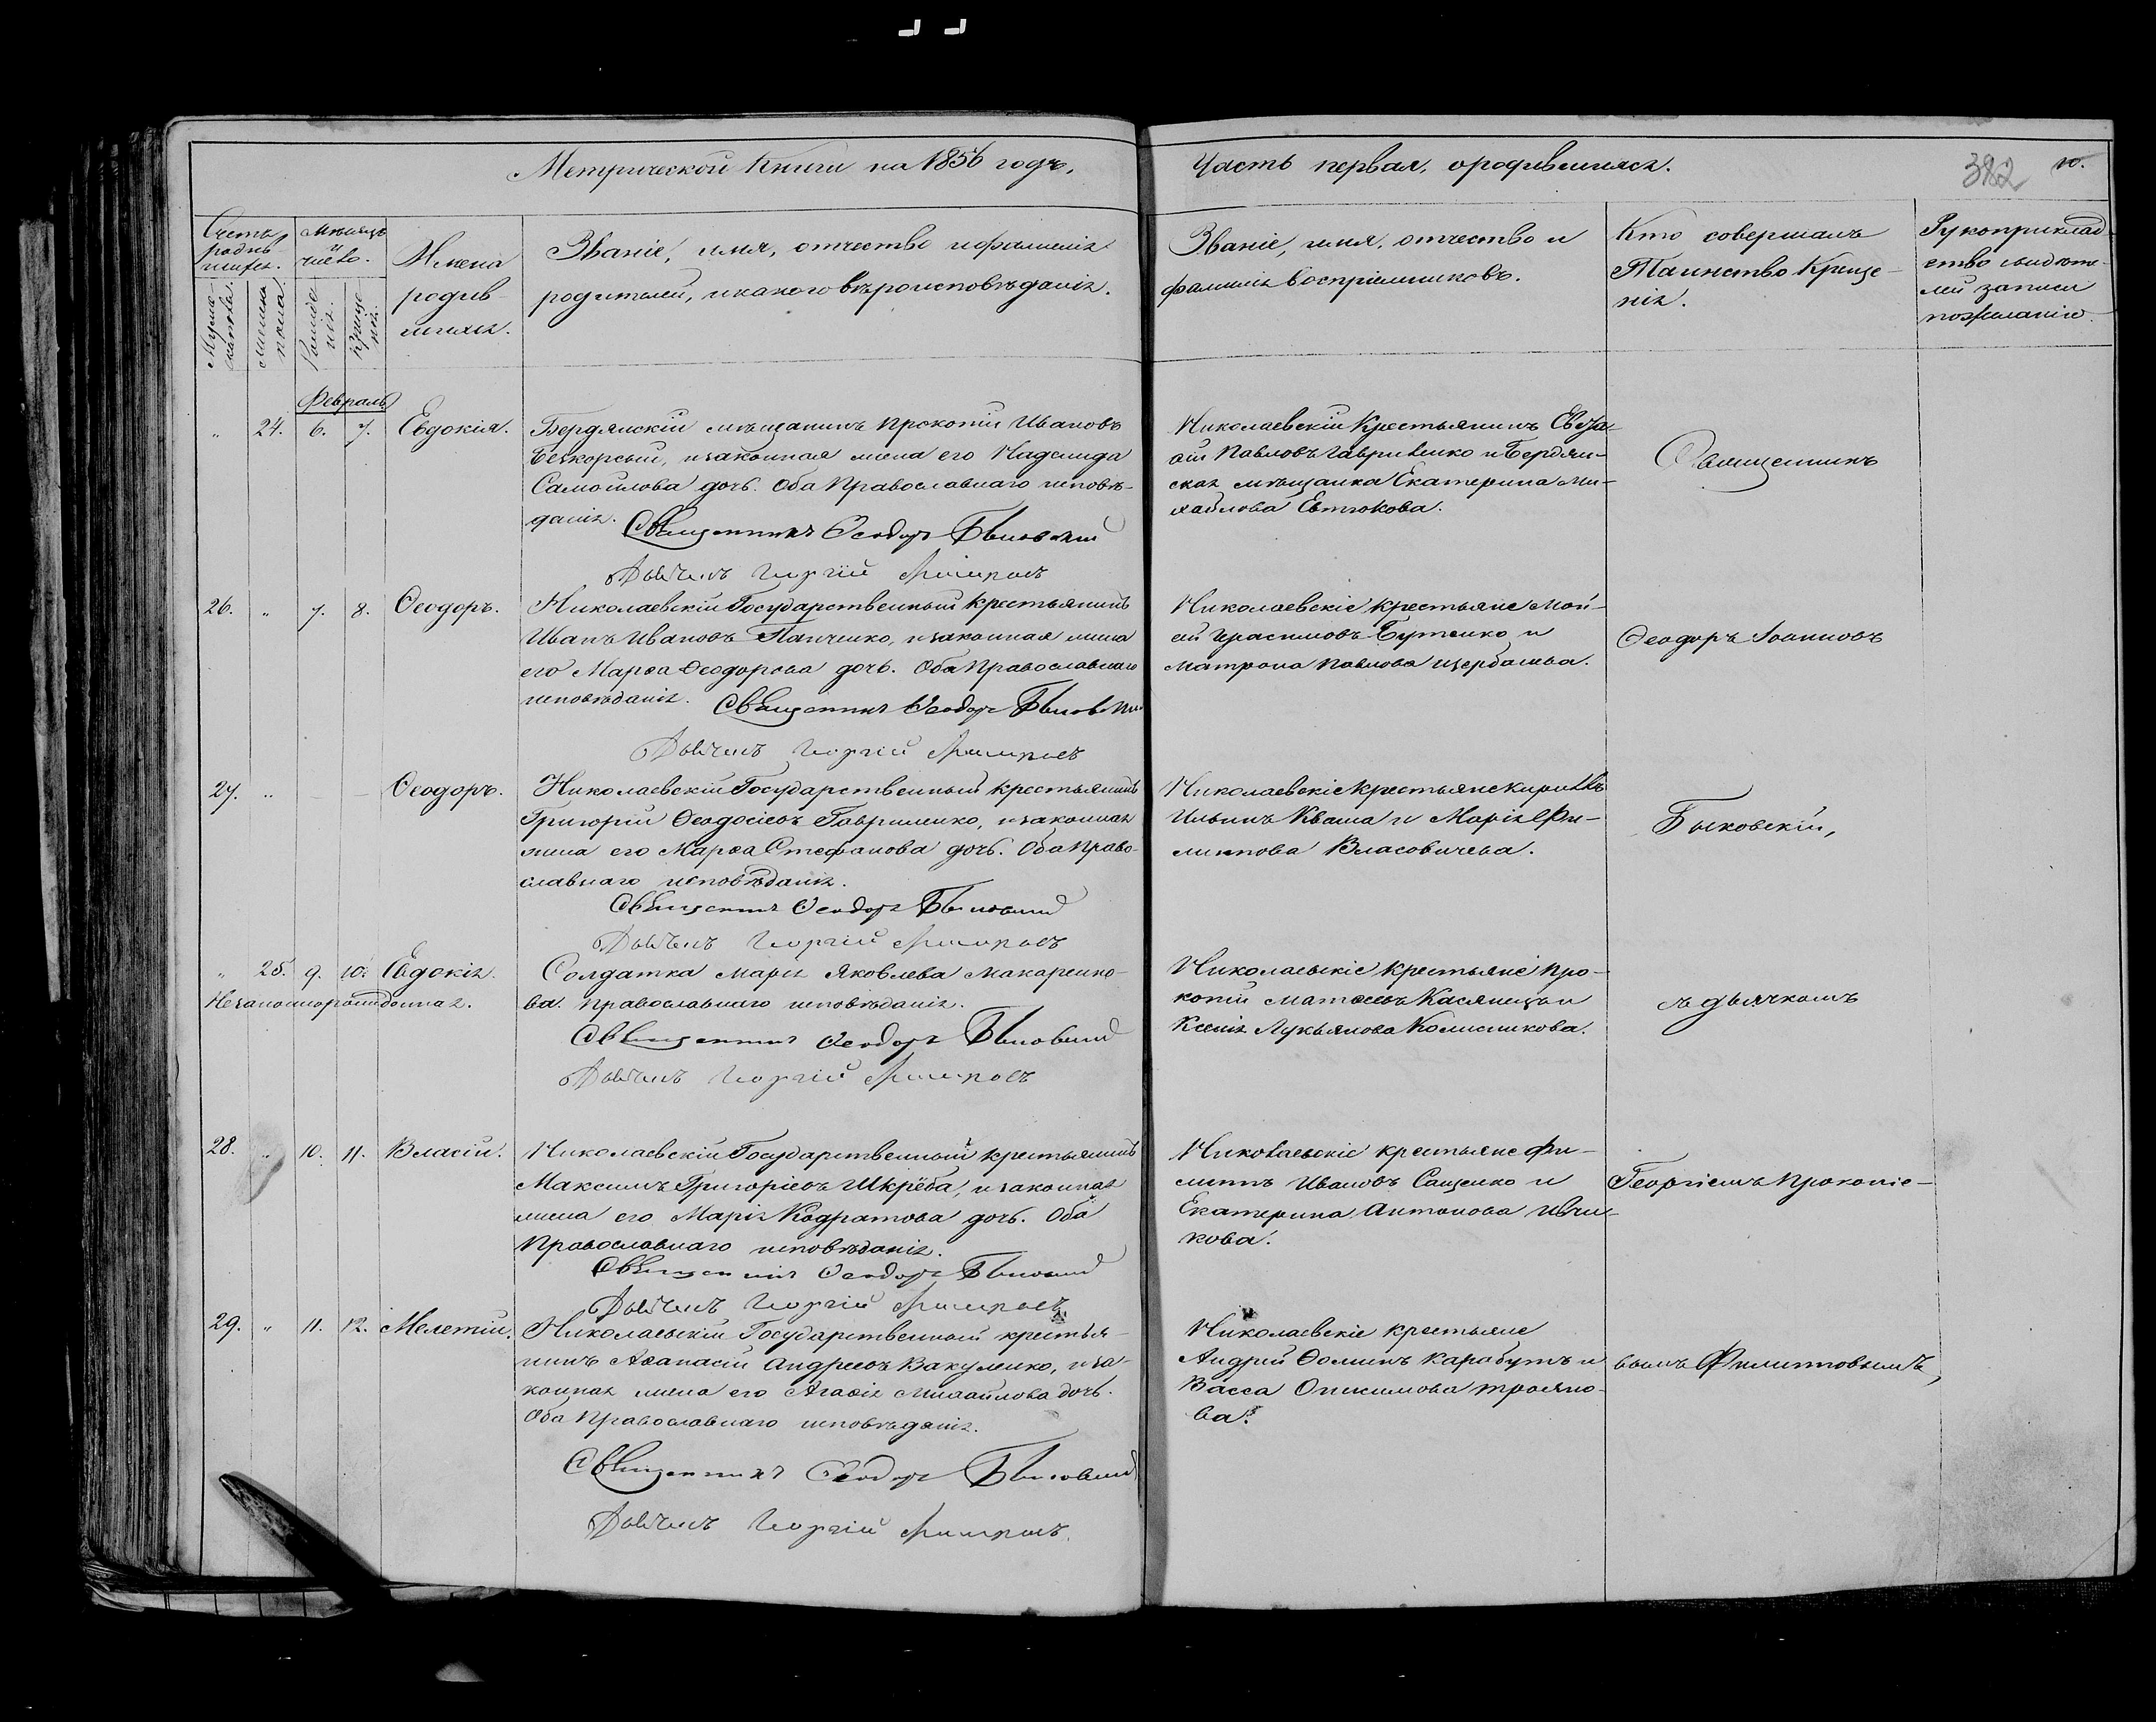 Метрической Книги на 1856 годъ,
Часть первая, ородившихся.
382
10.
Счетъ родившихся.
Мѣсяцъ и число.
Мужескаго
Женска пола.
Рожденія.
Крещенія.
Имена родившихся.
Званіе, имя, отчество и фамилія
родителей, и какого вѣроисповѣданія.
Званіе, имя, отчество и
фамилія воспріемниковъ.
Кто совершалъ
Таинство Крещенія.
Рукоприкладство свидѣтелей записи по желанію.
Февраль
„ 24. 6. 7. Евдокія.
Бердянскій мѣщанинъ Прокопій Ивановъ
и законная жена его Надежда
Самойлова дочь. Оба Православнаго исповѣ-
данія.
Священникъ Ѳеодоръ Быковскій
Дьячекъ Георгій
Николаевскій Крестьянинъ
Павловъ Гавриленко и Бердян-
ская мѣщанка Екатерина Ми-
хайлова Евтюкова.
Священникъ
26. „ 7. 8. Ѳеодоръ.
Николаевскій Государственный Крестьянинъ
Иванъ Ивановъ Панченко, и законная жена
его Марѳа Ѳеодорова дочь. Оба Православнаго
исповѣданія.
Священникъ Ѳеодоръ Быковскій
Дьячекъ Георгій
Николаевскіе крестьяне Мои-
сей Герасимовъ Бутенко и
Матрона Павлова Щербакова.
Ѳеодоръ Іоанновъ
27. „ Ѳеодоръ.
Николаевскій Государственный крестьянинъ
Григорій Ѳеодосіевъ Гавриленко, и законная
жена его Марѳа Стефанова дочь. Оба Право-
славнаго исповѣданія.
Священникъ Ѳеодоръ Быковскій
Дьячекъ Георгій
Николаевскіе крестьяне Кириллъ
Ильинъ Кваша и Марія Фи-
липпова Власовичева.
Быковскій,
„ 25. 9. 10. Евдокія.
Незаконнорожденная.
Солдатка Марія Яковлева Макаренко-
ва. Православнаго исповѣданія.
Священникъ Ѳеодоръ Быковскій
Дьячекъ Георгій
Николаевскіе крестьяне Про-
копій Матѳеевъ Касянецъ и
Ксенія Лукьянова Колисникова.
съ дьячкомъ
28. „ 10. 11. Власій.
Николаевскій Государственный крестьянинъ
Максимъ Григоріевъ Шкрёба, и законная
жена его Марія Кодратова дочь. Оба
Православнаго исповѣданія.
Священникъ Ѳеодоръ Быковскій
Дьячекъ Георгій
Николаевскіе крестьяне Фи-
липпъ Ивановъ Сащенко и
Екатерина Антонова Ивчи-
кова.
Георгіемъ Прокопіе-
29. „ 11. 12. Мелетій.
Николаевскій Государственный крестья-
нинъ Аѳанасій Андреевъ Вакуленко, и за-
конная жена его Агаѳія Михайлова дочь.
Оба Православнаго исповѣданія.
Священникъ Ѳеодоръ Быковскій
Дьячекъ Георгій
Николаевскіе крестьяне
Андрей Ѳоминъ Карабутъ и
Васса Онисимова Трояно-
ва.
вымъ Филипповымъ,